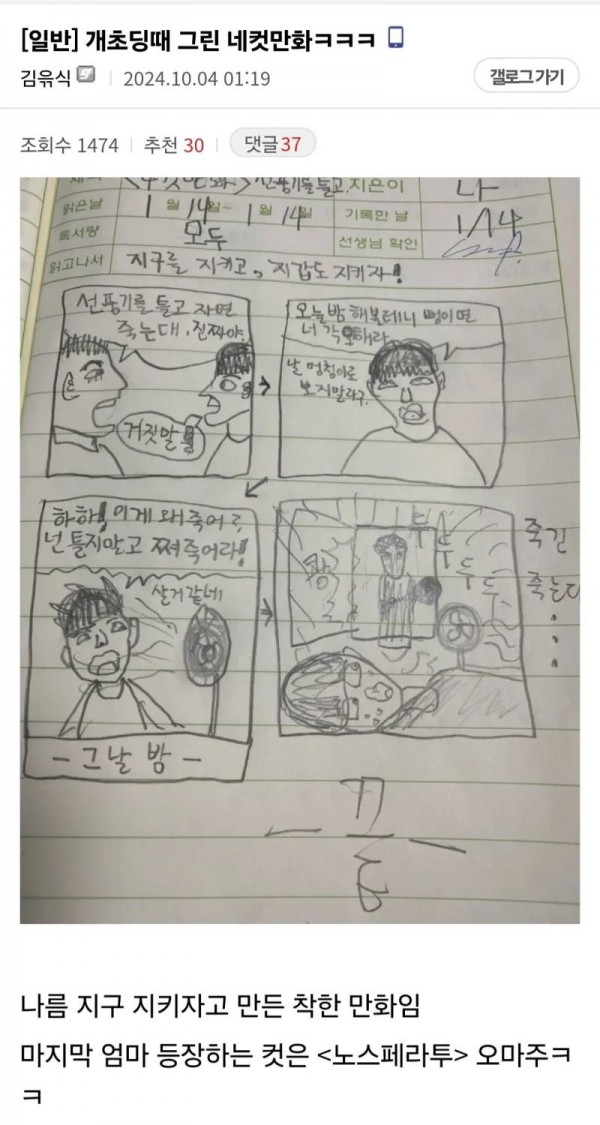 [일반] 개초딩때 그린 네컷만화ㅋㅋㅋ
김윾식 2024.10.04 01:19
갤로그 가기
조회수 1474 추천 30 댓글 37
선풍기를 틀고. 지은이 나
읽은날 1월 14일~ 1월 14일 기록한 날 1/14
독서량 모두 선생님 확인
읽고나서 지구를 지키고, 지갑도 지키자!
선풍기를 틀고 자면
죽는대, 진짜야.
거짓말
오늘밤 해볼테니 뻥이면
너 각오해라
날 멍청이로
보지말라구.
하하! 이게 왜 죽어
넌 틀지말고 쪄죽어라!
살거같네
- 그날 밤 -
쾅
두
두
두
두
죽긴
죽는다
...
- 끝 -
나름 지구 지키자고 만든 착한 만화임
마지막 엄마 등장하는 컷은 <노스페라투> 오마주ㅋ
ㅋ